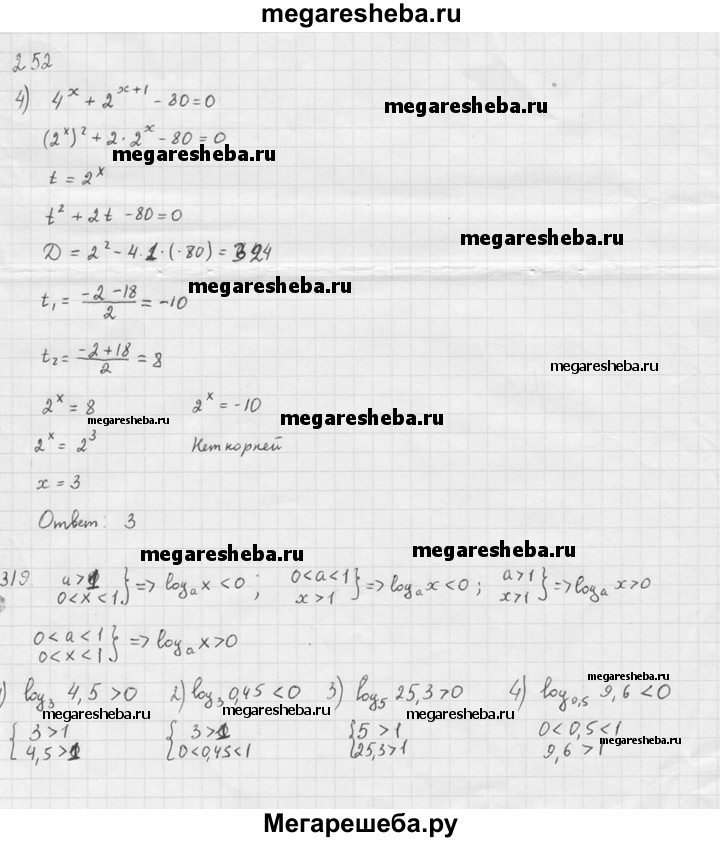 megaresheba.ru
252
4) 4^x + 2^(x+1) - 80 = 0
megaresheba.ru
(2^x)² + 2·2^x - 80 = 0
megaresheba.ru
t = 2^x
t² + 2t - 80 = 0
megaresheba.ru
D = 2² - 4·1·(-80) = 324
t₁ = (-2-18)/2 = -10
megaresheba.ru
t₂ = (-2+18)/2 = 8
megaresheba.ru
2^x = 8 2^x = -10
megaresheba.ru megaresheba.ru
2^x = 2³ Нет корней
x = 3
Ответ: 3
megaresheba.ru megaresheba.ru
319. a>1 0<x<1} => logₐx <0; 0<a<1 x>1} => logₐx<0; a>1 x>1} => logₐx>0
0<a<1 0<x<1} => logₐx>0
) log₃ 4,5 >0 2) log₃ 0,45 <0 3) log₅ 25,3 >0 4) log₀,₅ 9,6 <0
megaresheba.ru
megaresheba.ru megaresheba.ru megaresheba.ru
{3>1 {3>1 {5>1 0<0,5<1
megaresheba.ru
4,5>1 0<0,45<1 25,3>1 9,6>1
Мегарешеба.ру